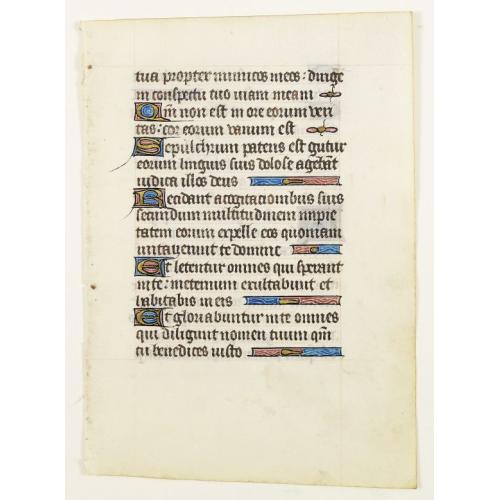 tua propter inimicos meos: dirige
in conspectu tuo uiam meam
Qm̄ non est in ore eorum veri
tas: cor eorum vanum est
Sepulchrum patens est gutur
eorum linguis suis dolose agebāt
iudica illos deus
Recidant a cogitacionibus suis
secundum multitudinem impie
tatem eorum expelle eos quoniam
irritauerunt te domine
Et letentur omnes qui sperant
in te: in eternum exultabunt et
habitabis in eis
Et gloriabuntur in te omnes
qui diligunt nomen tuum qm̄
tu benedices iusto